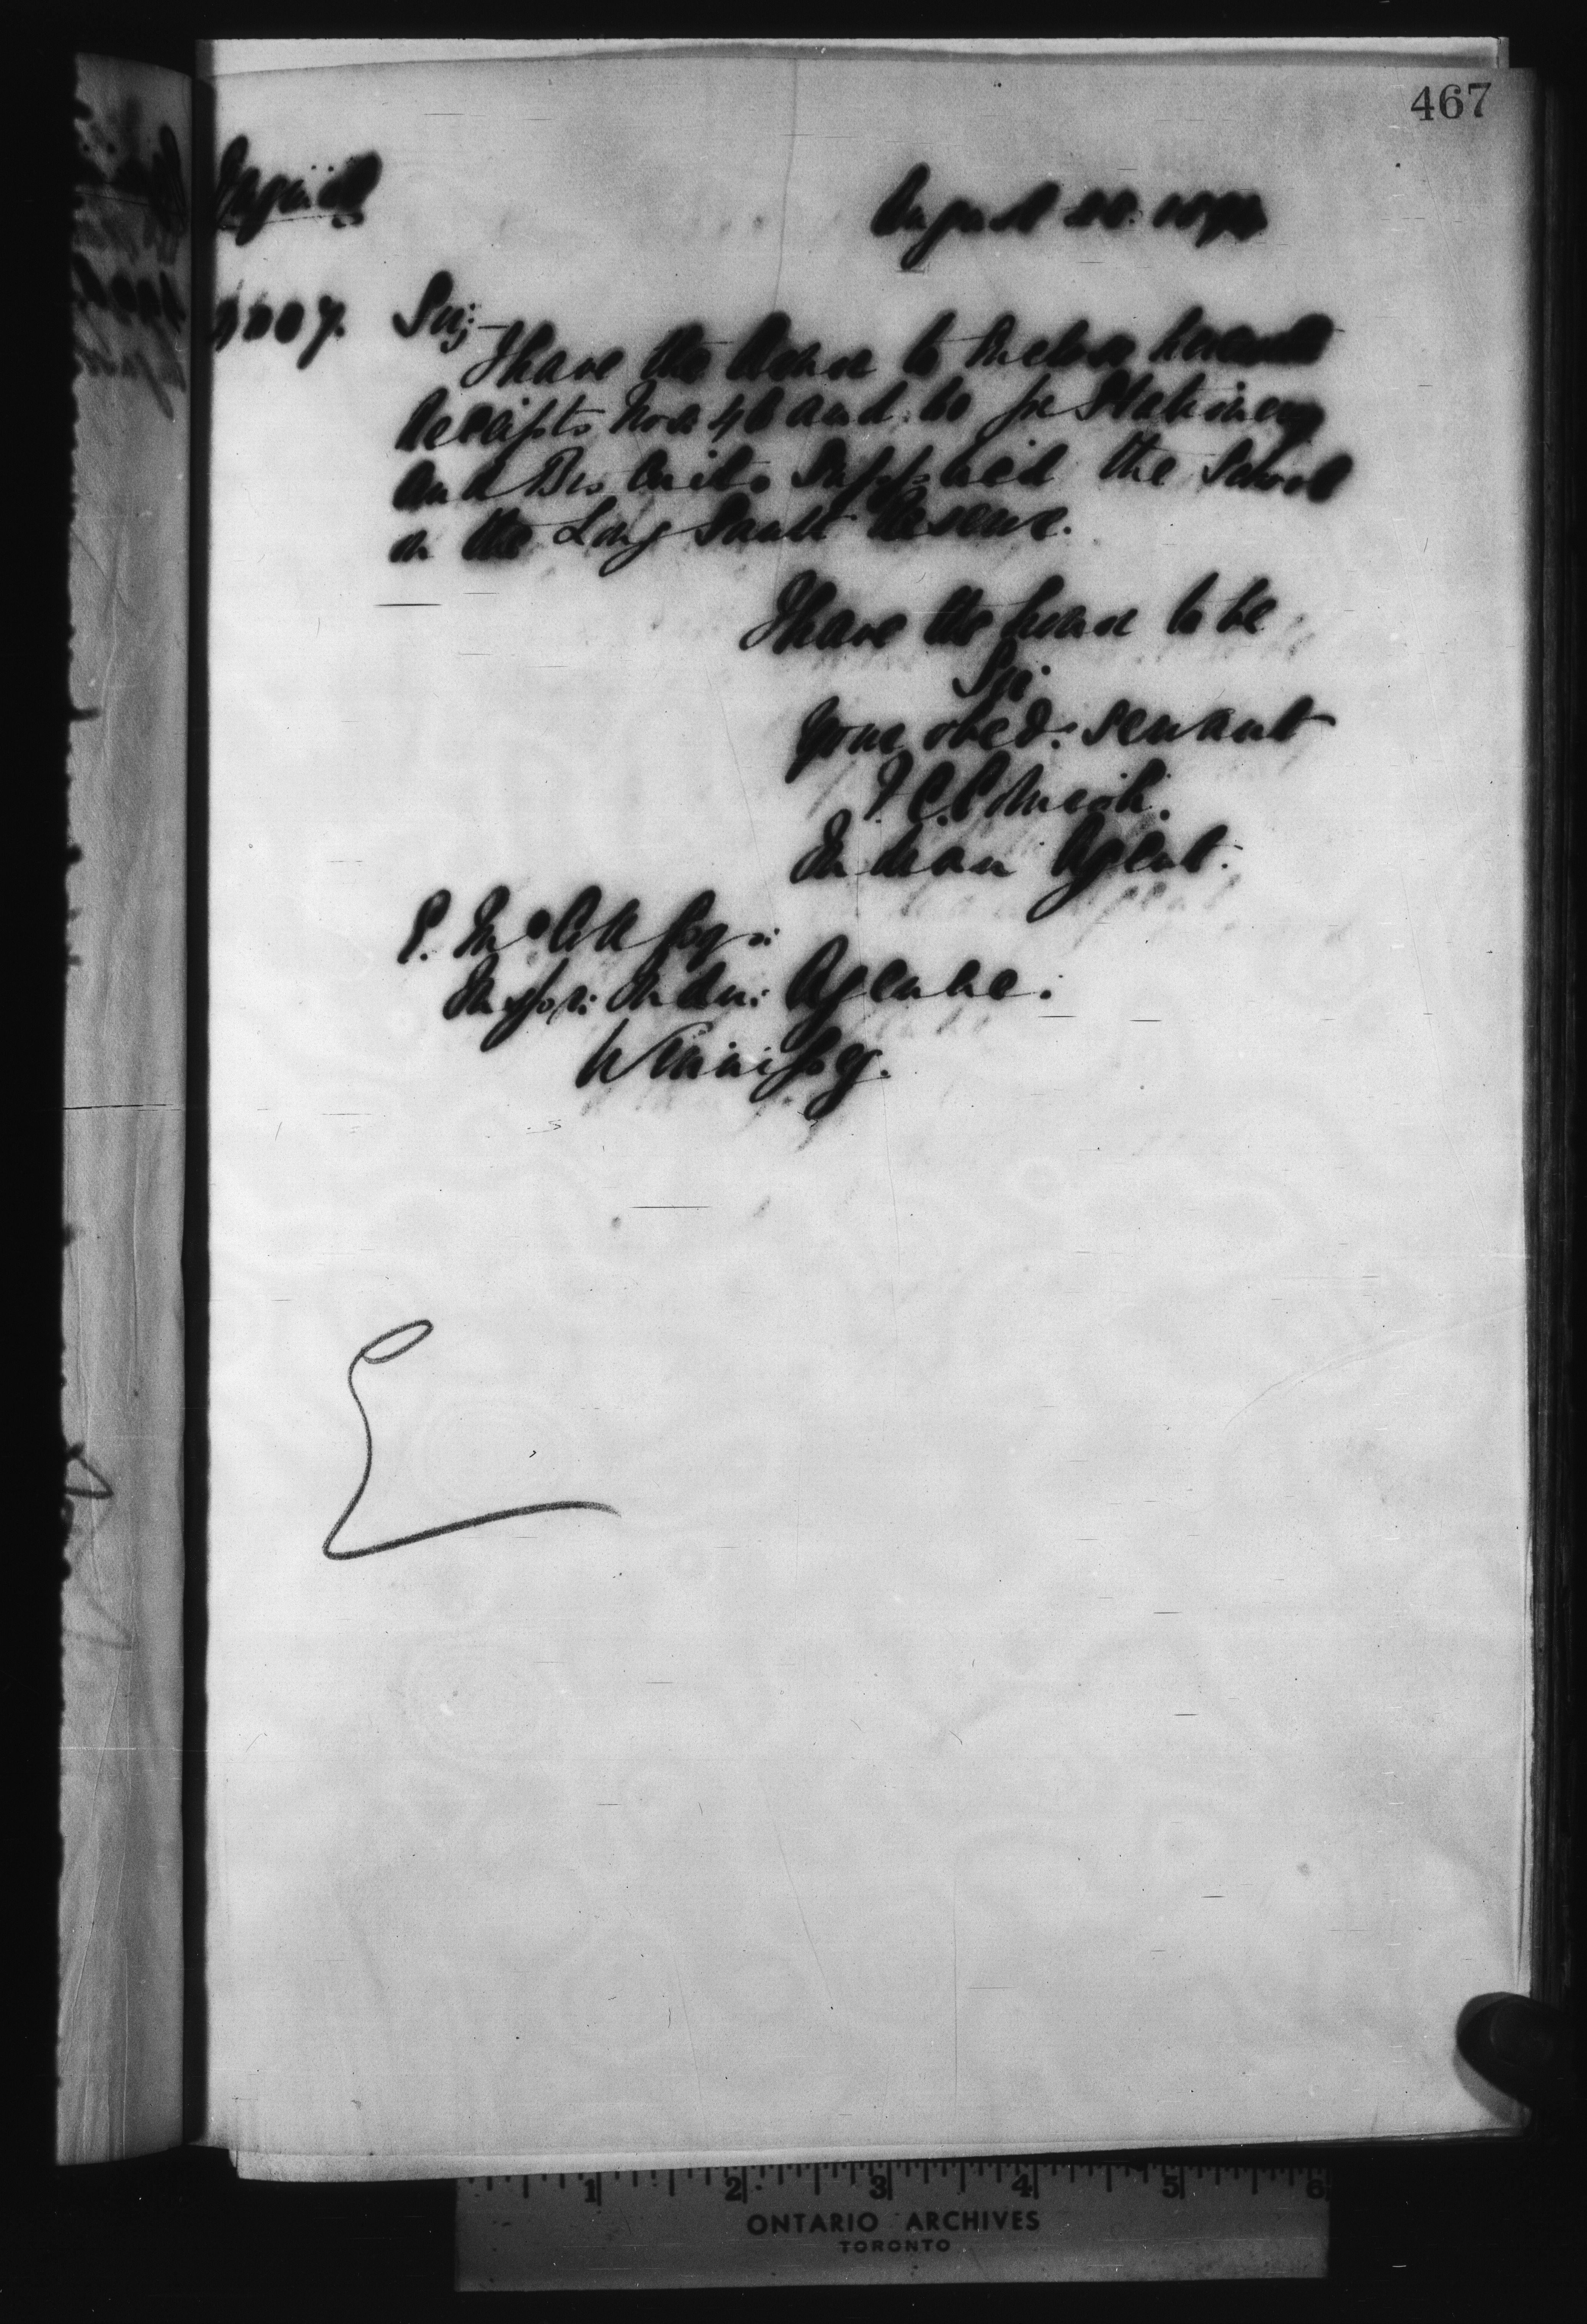 467
August 1890
Sir;—
I have the honor to enclose herewith
Receipts Nos 46 and 60 for Stationery
and Biscuits supplied the School
on the Long Sault Reserve.
I have the honor to be
Sir
Your obed: servant
Indian Agent.
E. McColl Esqr:
Inspr: Indn: Agencies:
Winnipeg.
1 2 3 4 5 6
ONTARIO ARCHIVES
TORONTO